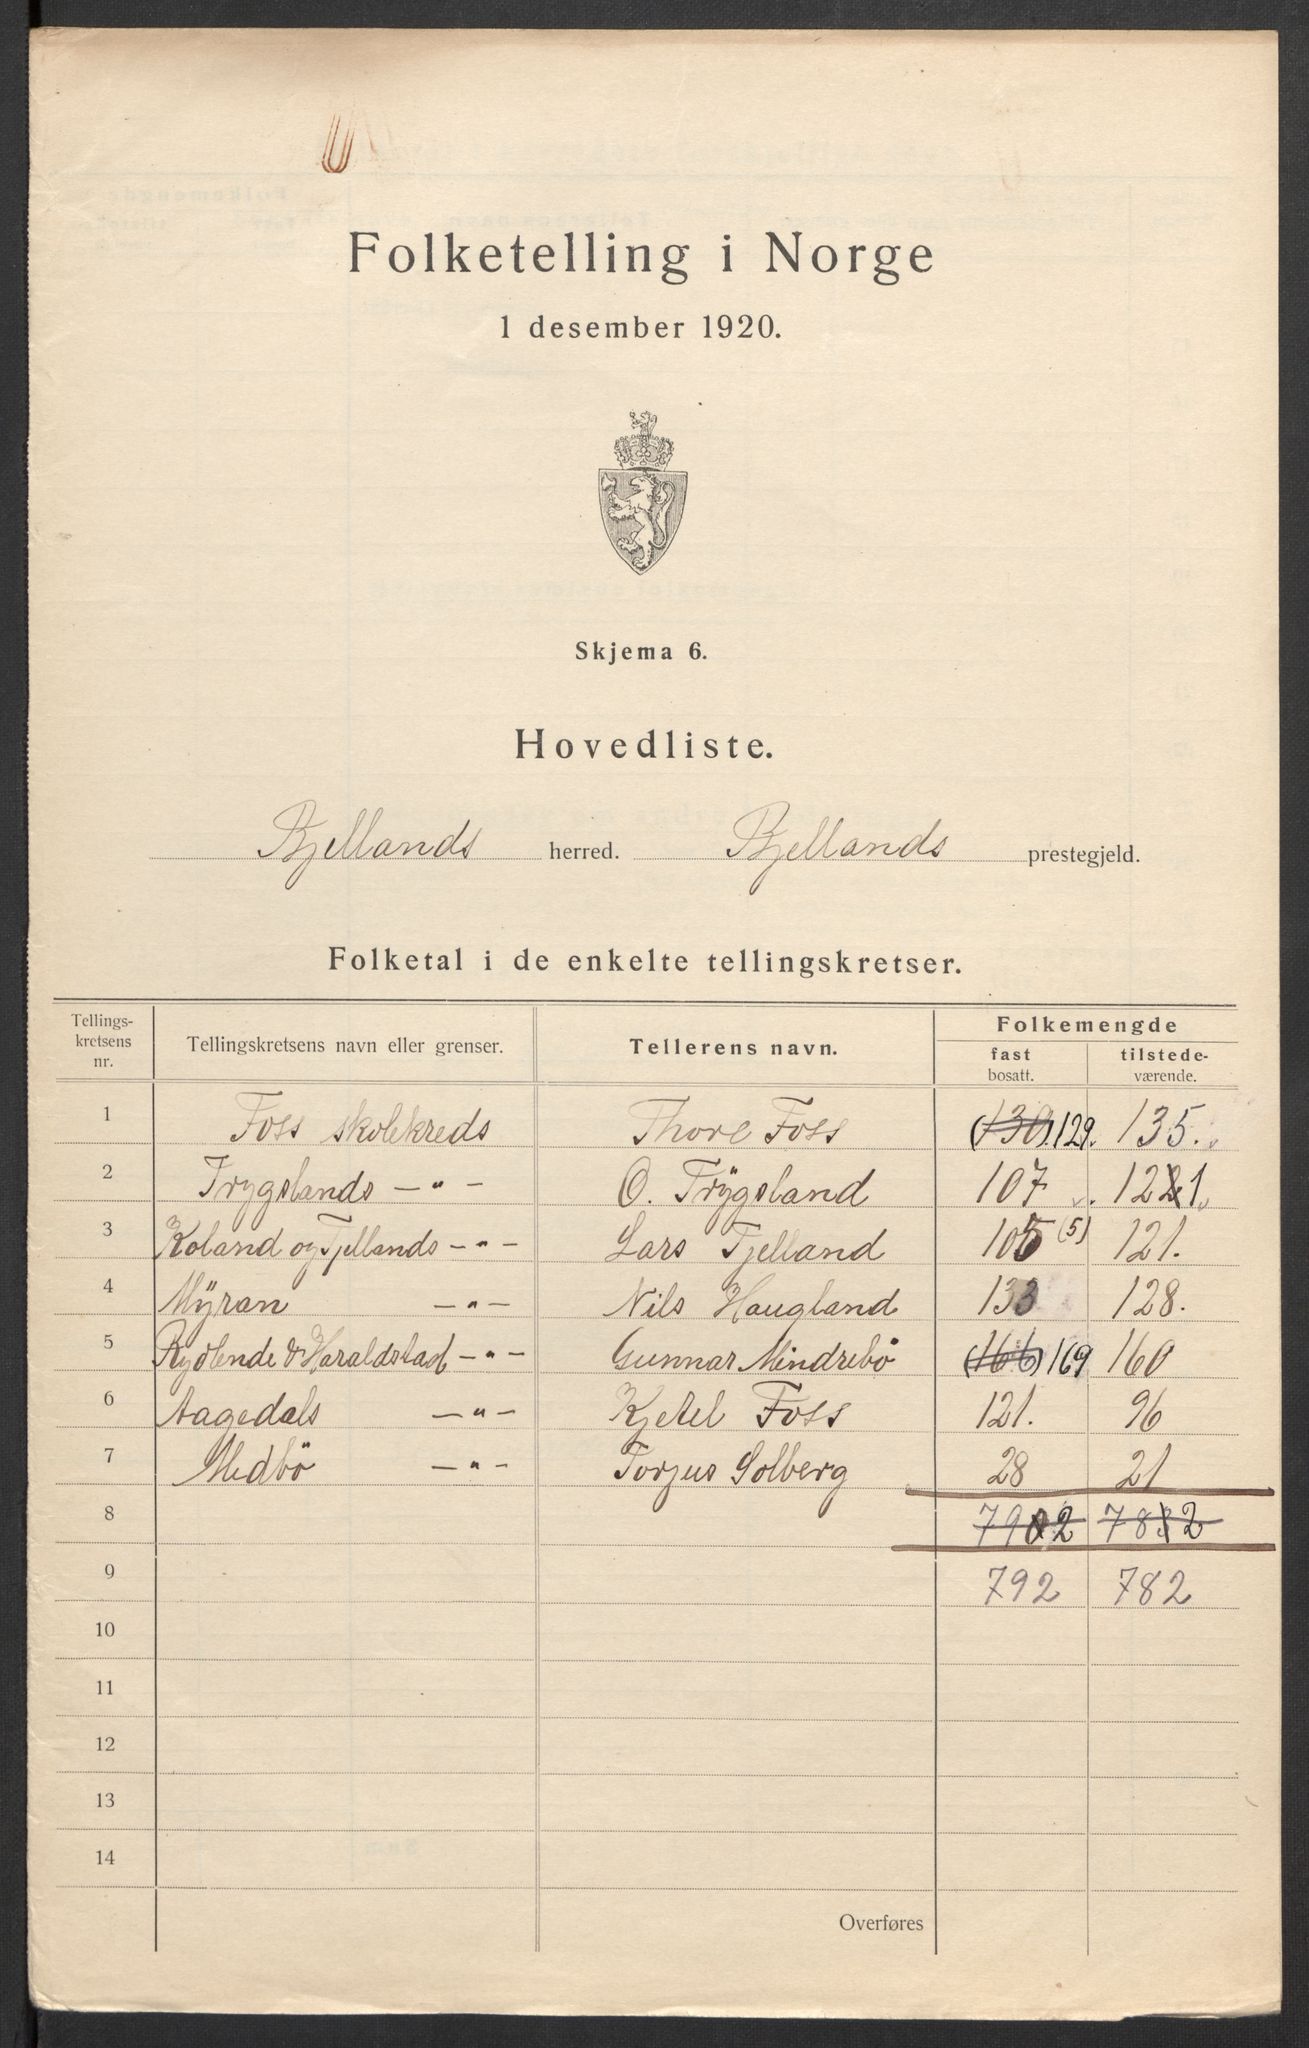 Folketelling i Norge
1 desember 1920.
Skjema 6.
Hovedliste.
Bjellands herred. Bjellands prestegjeld.
Folketal i de enkelte tellingskretser.
Tellings-
kretsens
nr.
Tellingskretsens navn eller grenser.
Tellerens navn.
Folkemengde
fast
bosatt.
tilstede-
værende.
1 Foss skolekreds Thore Foss (130) 129. 135.
2 Trygslands — " — O. Trÿgsland 107 121.
3 Koland og Tjellands — " — Lars Tjelland 105 (5) 121.
4 Mÿran — " — Nils Haugland 133 128.
5 Rydlende & Haraldstad — " — Gunnar Mindrebö (166) 169 160
6 Aagedals — " — Kjetel Foss 121. 96
7 Medbö — " — Torjus Solberg 28 21
8 792 782
9 792 782
10
11
12
13
14
Overføres